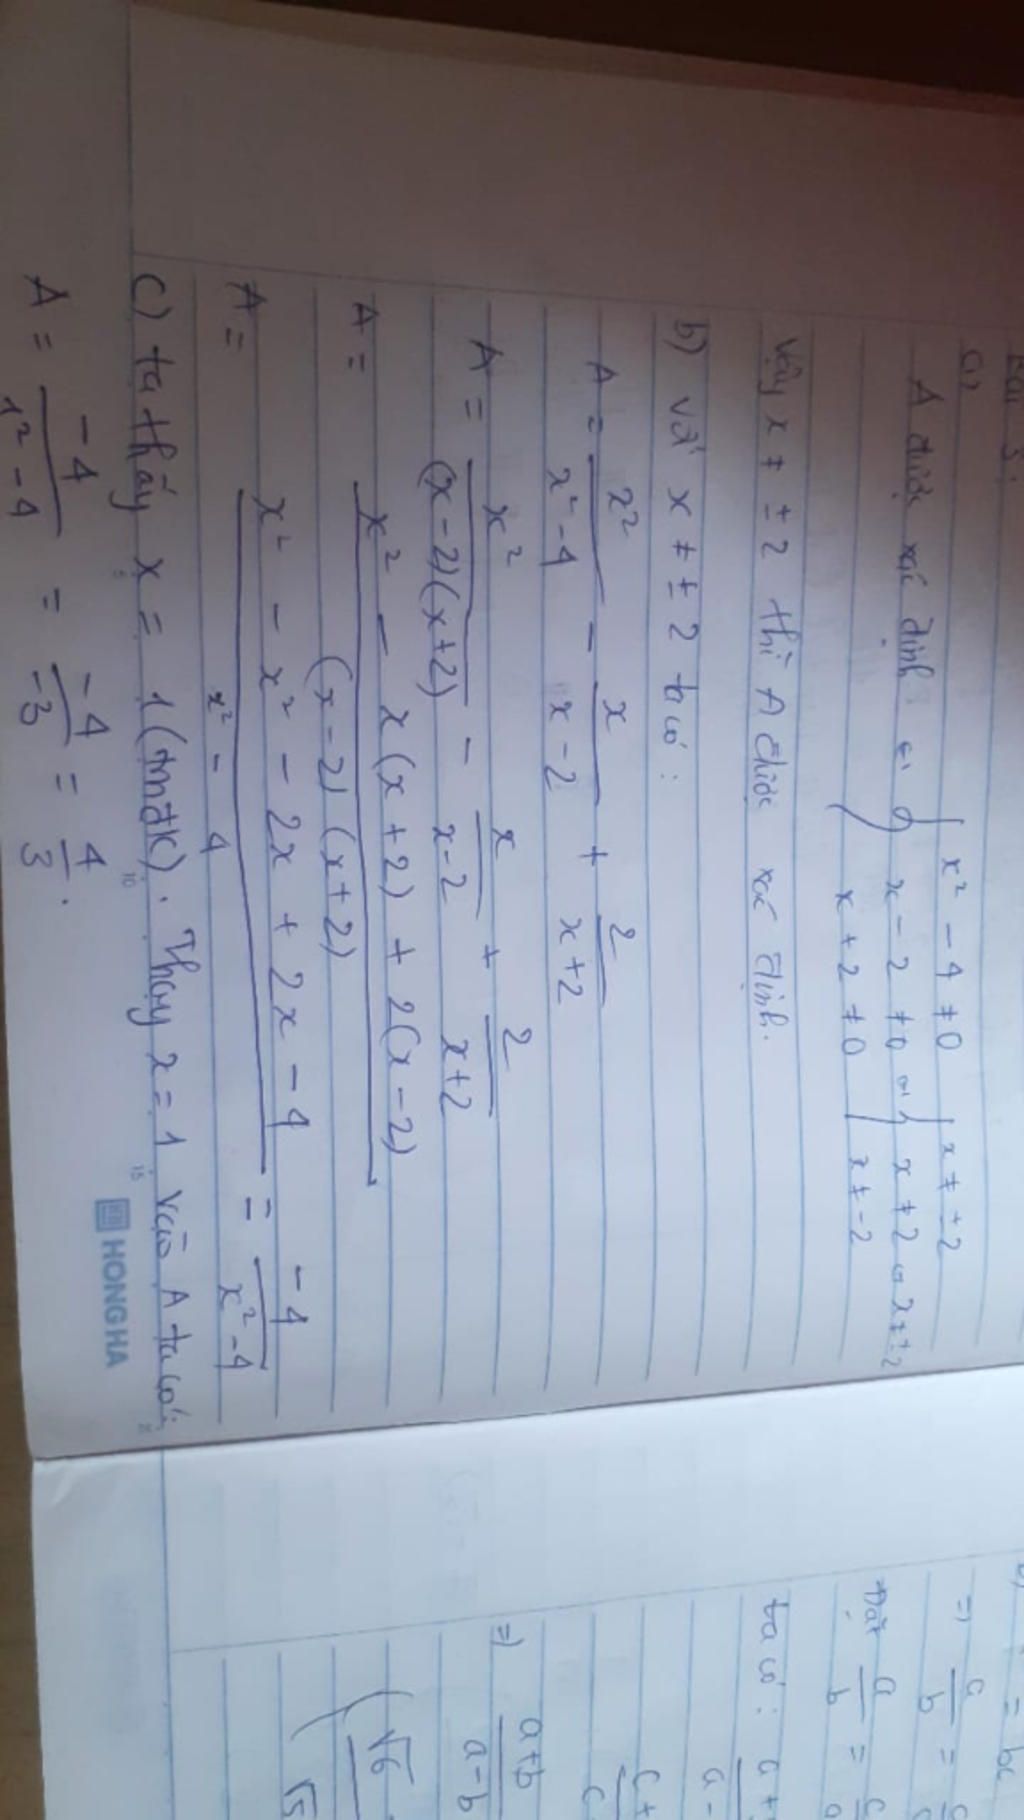 Bài 3:
a)
A được xác định ⇔ { x² - 4 ≠ 0 { x ≠ ±2
x - 2 ≠ 0 ⇔ x ≠ 2 ⇔ x ≠ ±2
x + 2 ≠ 0 x ≠ -2
Vậy x ≠ ±2 thì A được xác định.
b) với x ≠ ±2 ta có:
A = x²/(x² - 4) - x/(x - 2) + 2/(x+2)
A = x²/((x-2)(x+2)) - x/(x-2) + 2/(x+2)
A = (x² - x(x+2) + 2(x-2))/((x-2)(x+2))
A = (x² - x² - 2x + 2x - 4)/(x² - 4) = -4/(x² - 4)
c) ta thấy x = 1 (tmđk). Thay x = 1 vào A ta có:
A = -4/(1² - 4) = -4/-3 = 4/3.
HONG HA
= bc
⇒ a/b =
Đặt a/b =
ta có:
⇒ (a+b)/(a-b)
√6
√5